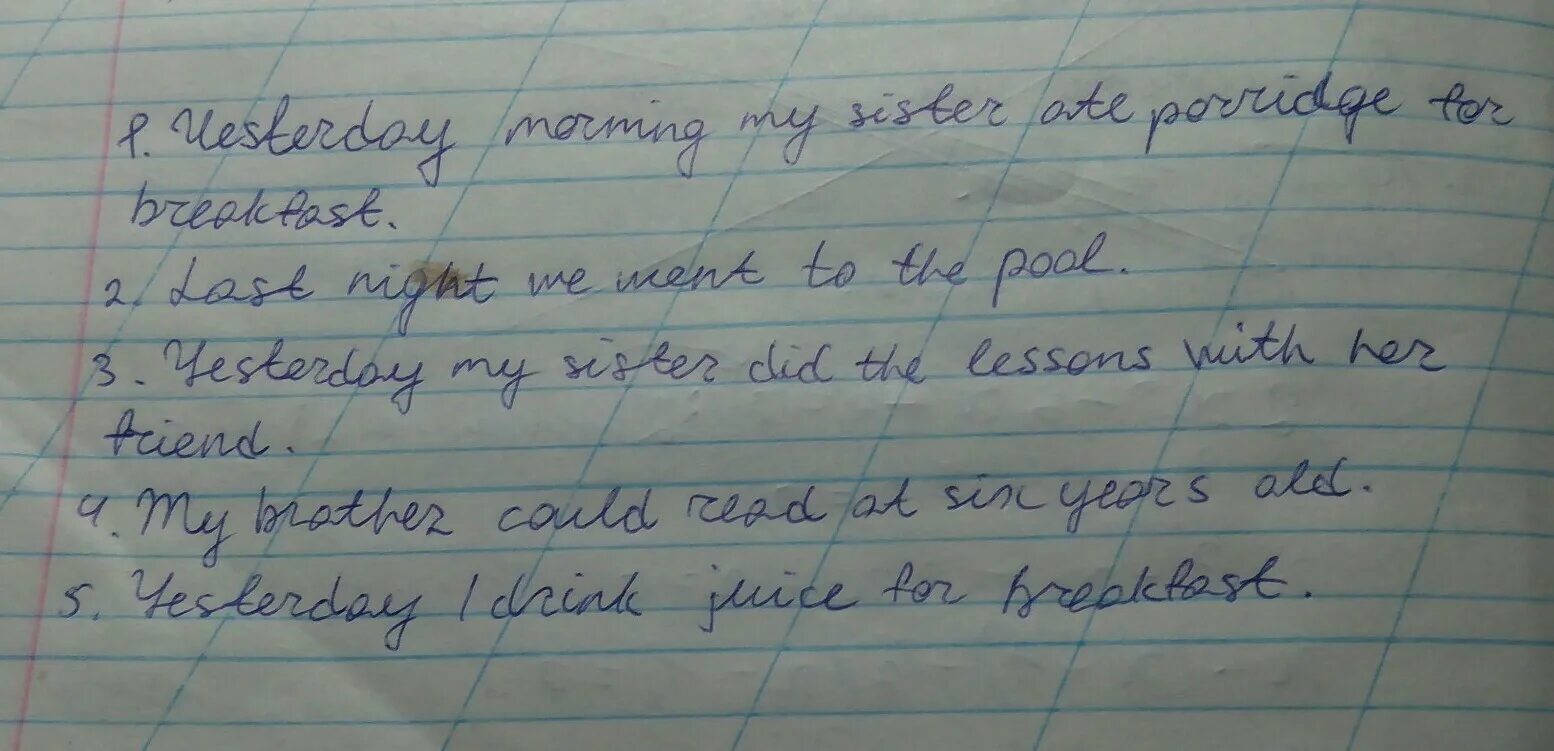 1. Yesterday morning my sister ate porridge for
breakfast.
2. Last night we went to the pool.
3. Yesterday my sister did the lessons with her
friend.
4. My brother could read at six years old.
5. Yesterday I drink juice for breakfast.